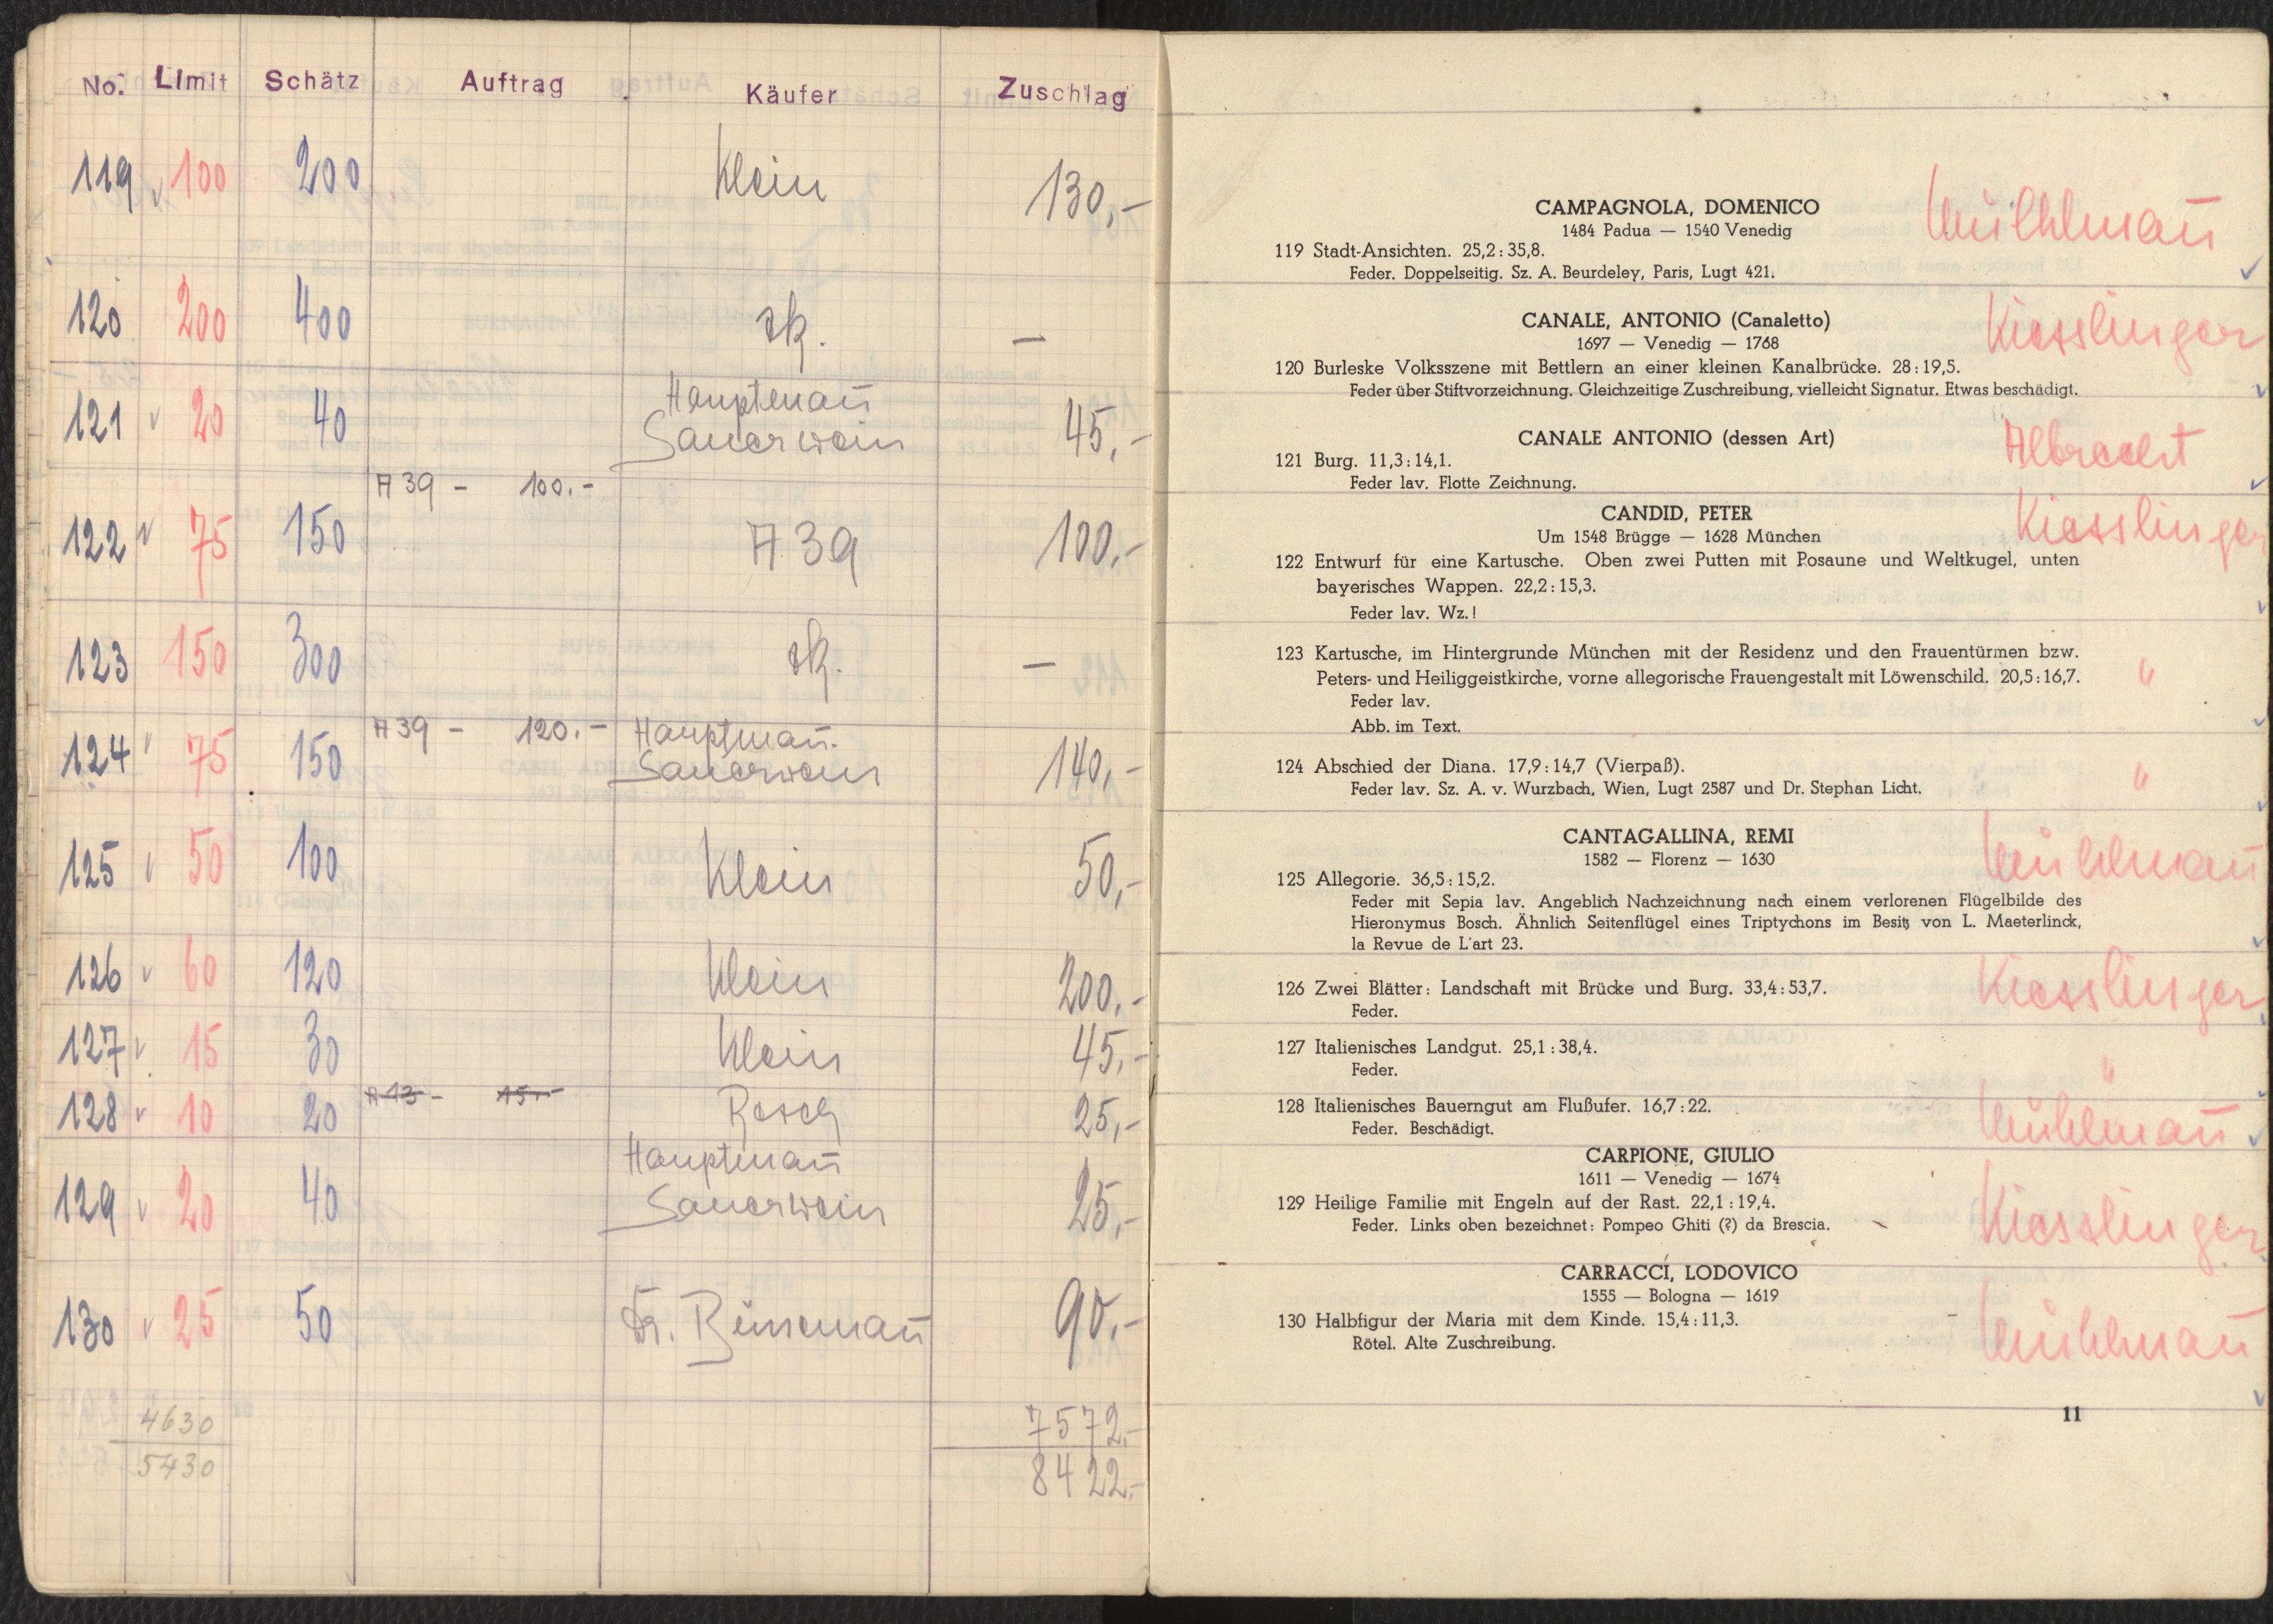 No. Limit Schätz Auftrag Käufer Zuschlag
119 v 100 200 Klein 130,-
120 200 400 zk. –
121 v 20 40 Hauptmañ
Sauerwein 45,-
A 39 - 100.-
122 v 75 150 A 39 100,-
123 150 300 zk. –
A 39 - 120.- Hauptmañ.
124 v 75 150 Sauerwein 140,-
125 v 50 100 Klein 50,-
126 v 60 120 Klein 200,-
127 v 15 30 Klein 45,-
A 13 - 15.-
128 v 10 20 Resch 25,-
Hauptmañ
129 v 20 40 Sauerwein 25,-
130 v 25 50 Dr. 90,-
4630 7572.-
5430 8422.-
CAMPAGNOLA, DOMENICO
1484 Padua — 1540 Venedig
119 Stadt-Ansichten. 25,2 : 35,8.
Feder. Doppelseitig. Sz. A. Beurdeley, Paris, Lugt 421.
CANALE, ANTONIO (Canaletto) Kiesslinger
1697 — Venedig — 1768
120 Burleske Volksszene mit Bettlern an einer kleinen Kanalbrücke. 28 : 19,5.
Feder über Stiftvorzeichnung. Gleichzeitige Zuschreibung, vielleicht Signatur. Etwas beschädigt.
CANALE ANTONIO (dessen Art) Albrecht
121 Burg. 11,3 : 14,1.
Feder lav. Flotte Zeichnung.
CANDID, PETER Kiesslinger
Um 1548 Brügge — 1628 München
122 Entwurf für eine Kartusche. Oben zwei Putten mit Posaune und Weltkugel, unten
bayerisches Wappen. 22,2 : 15,3.
Feder lav. Wz. !
123 Kartusche, im Hintergrunde München mit der Residenz und den Frauentürmen bzw. "
Peters- und Heiliggeistkirche, vorne allegorische Frauengestalt mit Löwenschild. 20,5 : 16,7.
Feder lav.
Abb. im Text.
124 Abschied der Diana. 17,9 : 14,7 (Vierpaß). "
Feder lav. Sz. A. v. Wurzbach, Wien, Lugt 2587 und Dr. Stephan Licht.
CANTAGALLINA, REMI Mühlmañ
1582 — Florenz — 1630
125 Allegorie. 36,5 : 15,2.
Feder mit Sepia lav. Angeblich Nachzeichnung nach einem verlorenen Flügelbilde des
Hieronymus Bosch. Ähnlich Seitenflügel eines Triptychons im Besitz von L. Maeterlinck,
la Revue de L'art 23.
126 Zwei Blätter: Landschaft mit Brücke und Burg. 33,4 : 53,7. Kiesslinger
Feder.
127 Italienisches Landgut. 25,1 : 38,4. "
Feder.
128 Italienisches Bauerngut am Flußufer. 16,7 : 22. Mühlmañ
Feder. Beschädigt.
CARPIONE, GIULIO
1611 — Venedig — 1674
129 Heilige Familie mit Engeln auf der Rast. 22,1 : 19,4. Kiesslinger
Feder. Links oben bezeichnet: Pompeo Ghiti (?) da Brescia.
CARRACCI, LODOVICO
1555 — Bologna — 1619
130 Halbfigur der Maria mit dem Kinde. 15,4 : 11,3. Mühlmañ
Rötel. Alte Zuschreibung.
11